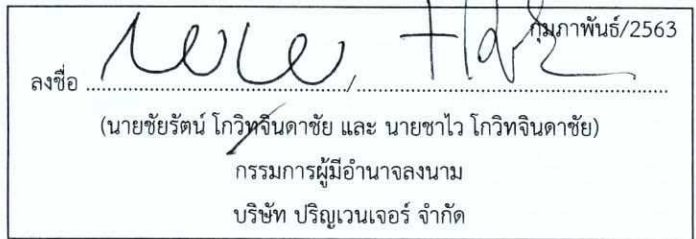 กุมภาพันธ์/2563
ลงชื่อ ........................................../..........................................
(นายชัยรัตน์ โกวิทจินดาชัย และ นายชาไว โกวิทจินดาชัย)
กรรมการผู้มีอำนาจลงนาม
บริษัท ปริญเวนเจอร์ จำกัด